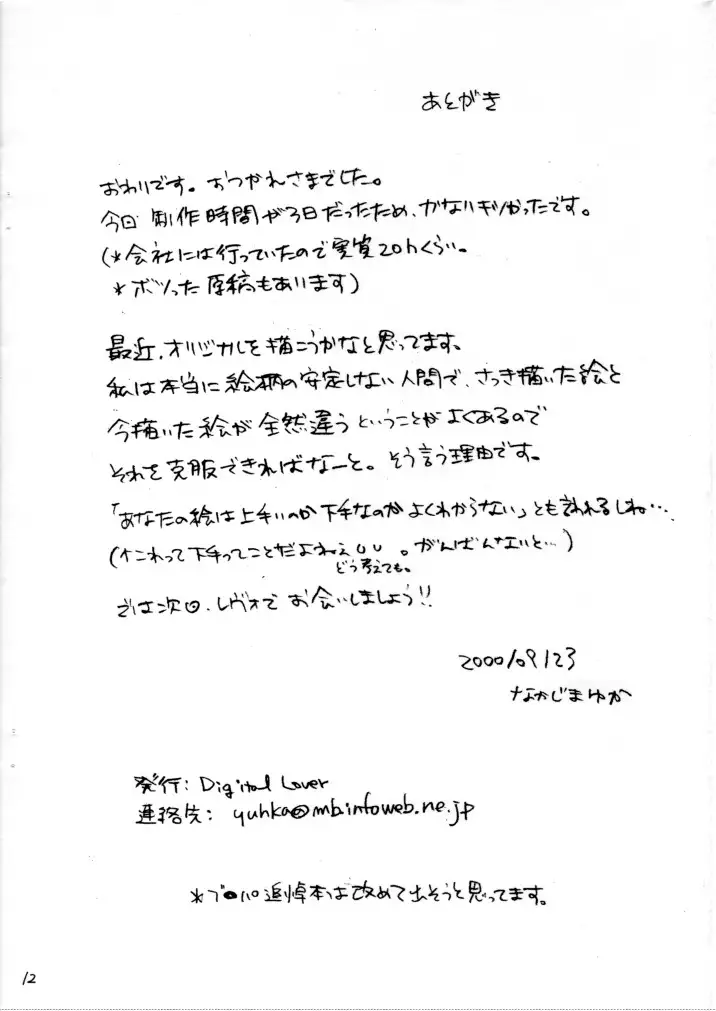 あとがき
おわりです。おつかれさまでした。
今回 制作時間が3日だったため、かなりギリかったです。
(*会社には行っていたので実質20hくらい。
*ボツった原稿もあります)
最近、オリジナルを描こうかなと思ってます。
私は本当に絵柄の安定しない人間で、さっき描いた絵と
今描いた絵が全然違うということがよくあるので
それを克服できればなーと。そう言う理由です。
「あなたの絵は上手いのか下手なのかよくわからない」とも言われるしね…。
って下手ってことだよねぇUU。がんばんないと…)
どう考えても。
では次回、レヴォでお会いしましょう!!
2000/09/23
なかじまゆか
発行: Digital Lover
連絡先: yuhka@mb.infoweb.ne.jp
*プ●パ追悼本は改めて出そうと思ってます。
12